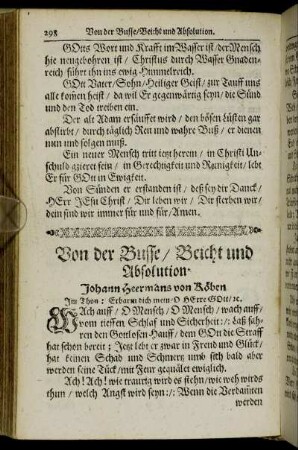 298 Von der Busse/Beicht und Absolution.
GOtts Wort und Krafft im Wasser ist/ der Mensch
hie neugebohren ist/ Christus durch Wasser Gnaden-
reich führt ihn ins ewig Himmelreich.
GOtt Vater/ Sohn/ Heiliger Geist/ zur Tauff uns
alle kom̃en heist/ da wil Er gegenwärtig seyn/ die Sünd
und den Tod treiben ein.
Der alt Adam ersäuffet wird/ den bösen lüsten gar
abstirbt/ durch täglich Reu und wahre Buß/ er dienen
nun und folgen muß.
Ein neuer Mensch tritt ietzt herein/ in Christi Un-
schuld gzieret fein/ in Gerechtigkeit und Reinigkeit/ lebt
Er für GOtt in Ewigkeit.
Von Sünden er erstanden ist/ deß sey dir Danck/
HErr JEsu Christ/ Dir leben wir/ Dir sterben wir/
dein sind wir immer für und für/ Amen.
Von der Busse/ Beicht und
Absolution.
Johann Heermans von Köben
Im Thon: Erbarm dich mein O HErre GOtt/ ꝛc.
WAch auff/ O Mensch/ O Mensch/ wach auff/
vom tieffen Schlaf und Sicherheit:/: laß fah-
ren den Gottlosen-Hauff/ dem GOtt die Straff
hat schon bereit; Jetzt lebt er zwar in Freud und Glück/
hat keinen Schad und Schmertz umb seth bald aber
werden seine Tück/ mit Feur gequälet ewiglich.
Ach! Ach! wie traurig wird es stehn/ wie weh wirds
thun/ welch Angst wird seyn:/: Wenn die Verdam̃ten
werden